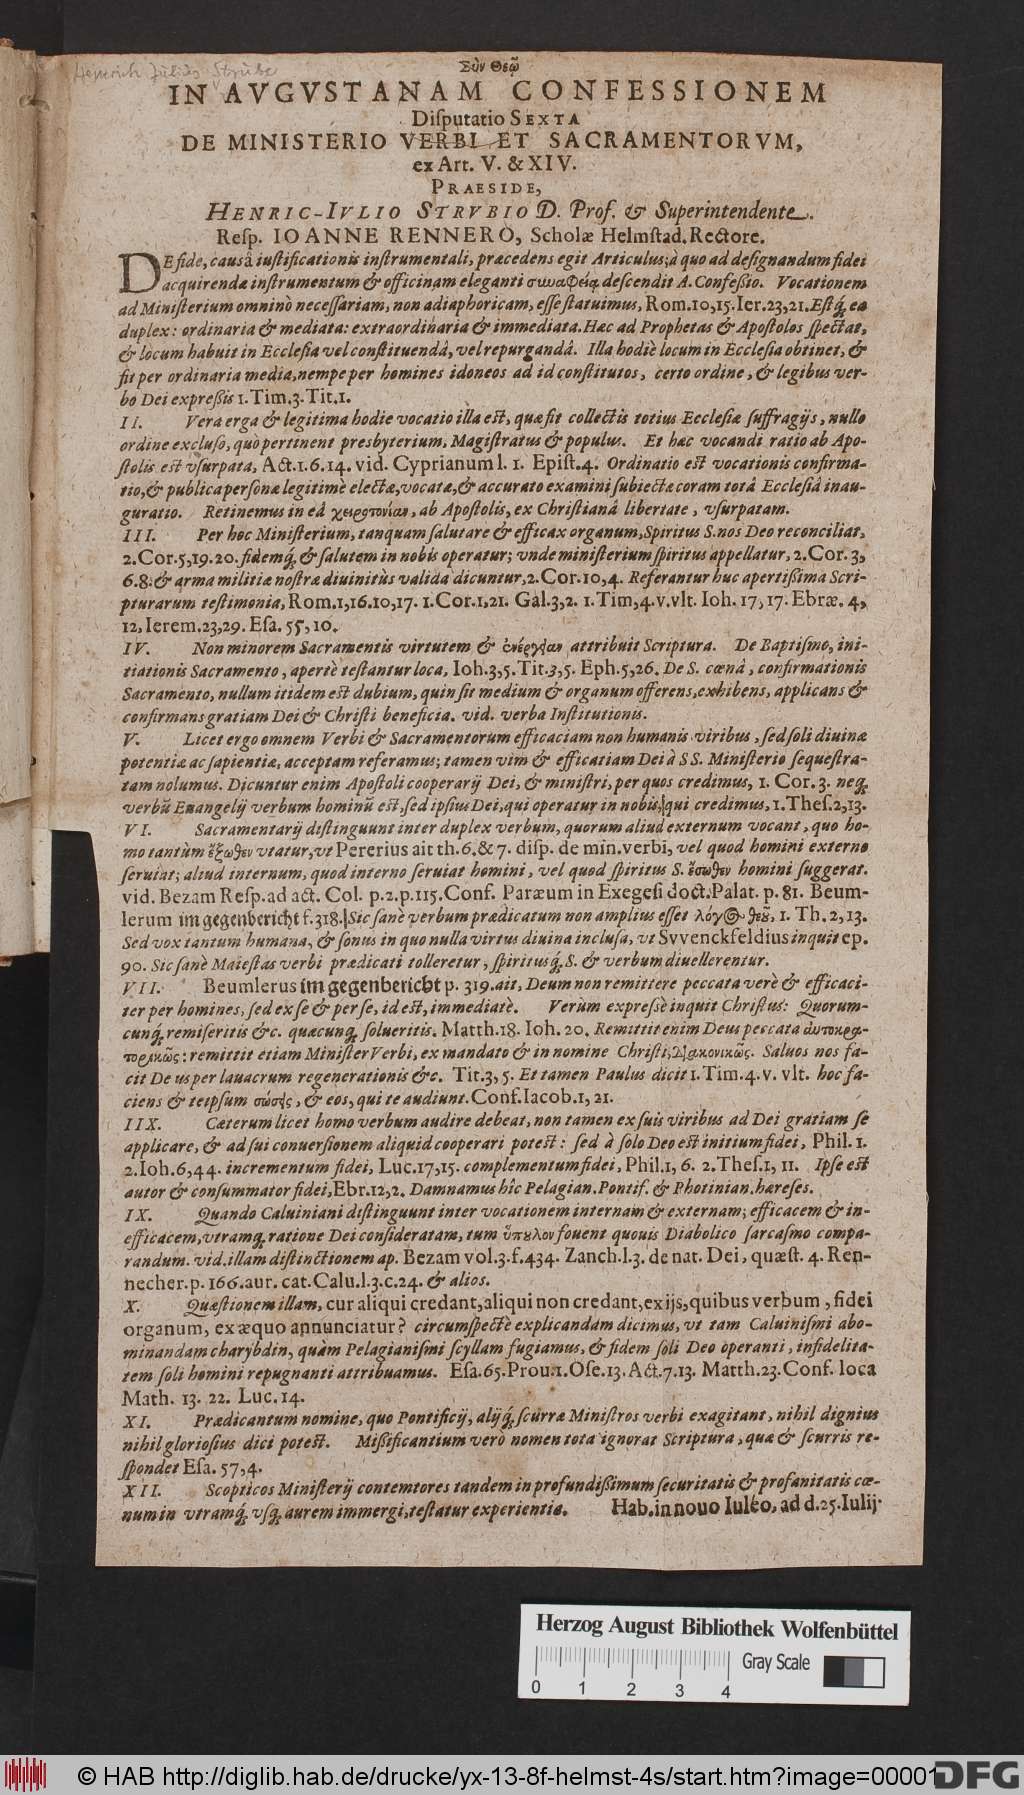 Heinrich Julius Strube
Σὺν Θεῷ
IN AVGVSTANAM CONFESSIONEM
Diſputatio SEXTA
DE MINISTERIO VERBI ET SACRAMENTORVM,
ex Art. V. & XIV.
PRAESIDE,
HENRIC-IVLIO STRVBIO D. Prof. & Superintendente.
Reſp. IOANNE RENNERO, Scholæ Helmſtad. Rectore.
DE fide, causâ iuſtificationis inſtrumentali, præcedens egit Articulus; à quo ad deſignandum fidei
acquirendæ inſtrumentum & officinam eleganti συναφείᾳ deſcendit A. Confeßio. Vocationem
ad Miniſterium omninò neceſſariam, non adiaphoricam, eſſe ſtatuimus, Rom.10,15. Ier.23,21. Eſtq́; ea
duplex: ordinaria & mediata: extraordinaria & immediata. Hæc ad Prophetas & Apoſtolos ſpectat,
& locum habuit in Eccleſia vel conſtituendâ, vel repurgandâ. Illa hodiè locum in Eccleſia obtinet, &
fit per ordinaria media, nempe per homines idoneos ad id conſtitutos, certo ordine, & legibus ver-
bo Dei expreßis 1. Tim.3. Tit.1.
II. Vera ergа & legitima hodie vocatio illa eſt, quæ fit collectis totius Eccleſiæ ſuffragijs, nullo
ordine excluſo, quò pertinent presbyterium, Magiſtratus & populus. Et hæc vocandi ratio ab Apo-
ſtolis eſt vſurpata, Act.1.6.14. vid. Cyprianum l. 1. Epiſt.4. Ordinatio eſt vocationis confirma-
tio, & publica perſonæ legitimè electæ, vocatæ, & accurato examini ſubiectæ coram totâ Eccleſiâ inau-
guratio. Retinemus in eâ χειροτονίαν, ab Apoſtolis, ex Chriſtianâ libertate, vſurpatam.
III. Per hoc Miniſterium, tanquam ſalutare & efficax organum, Spiritus S. nos Deo reconciliat,
2.Cor.5,19.20. fidemq́; & ſalutem in nobis operatur; vnde miniſterium ſpiritus appellatur, 2. Cor. 3,
6.8. & arma militiæ noſtræ diuinitùs valida dicuntur, 2. Cor.10,4. Referantur huc apertißima Scri-
pturarum teſtimonia, Rom.1,16.10,17. 1. Cor.1,21. Gal.3,2. 1. Tim,4.v.vlt. Ioh. 17,17. Ebræ. 4,
12, Ierem.23,29. Eſa. 55,10.
IV. Non minorem Sacramentis virtutem & ἐνέργειαν attribuit Scriptura. De Baptiſmo, ini-
tiationis Sacramento, apertè teſtantur loca, Ioh.3,5. Tit.3,5. Eph.5,26. De S. cœnâ, confirmationis
Sacramento, nullum itidem eſt dubium, quin ſit medium & organum offerens, exhibens, applicans &
confirmans gratiam Dei & Chriſti beneficia. vid. verba Inſtitutionis.
V. Licet ergo omnem Verbi & Sacramentorum efficaciam non humanis viribus, ſed ſoli diuinæ
potentiæ ac ſapientiæ, acceptam referamus; tamen vim & efficatiam Dei à SS. Miniſterio ſequeſtra-
tam nolumus. Dicuntur enim Apoſtoli cooperarij Dei, & miniſtri, per quos credimus, 1. Cor. 3. neq́;
verbū Euangelij verbum hominū eſt, ſed ipſius Dei, qui operatur in nobis, qui credimus, 1. Theſ.2,13.
VI. Sacramentarij diſtinguunt inter duplex verbum, quorum aliud externum vocant, quo ho-
mo tantùm ἔξωθεν vtatur, vt Pererius ait th.6.& 7. diſp. de min. verbi, vel quod homini externo
ſeruiat; aliud internum, quod interno ſeruiat homini, vel quod ſpiritus S. ἔσωθεν homini ſuggerat.
vid. Bezam Reſp. ad act. Col. p.2.p.115. Conf. Paræum in Exegeſi doct. Palat. p. 81. Beum-
lerum im gegenbericht f.318. Sic ſanè verbum prædicatum non amplius eſſet λόγος θεοῦ, 1. Th. 2,13.
Sed vox tantum humana, & ſonus in quo nulla virtus diuina incluſa, vt Svvenckfeldius inquit ep.
90. Sic ſanè Maieſtas verbi prædicati tolleretur, ſpiritusq́; S. & verbum diuellerentur.
VII. Beumlerus im gegenbericht p. 319. ait, Deum non remittere peccata verè & efficaci-
ter per homines, ſed ex ſe & per ſe, id eſt, immediatè. Verùm expreſsè inquit Chriſtus: Quorum-
cunq́; remiſeritis &c. quæcunq́; ſolueritis. Matth.18. Ioh. 20. Remittit enim Deus peccata αὐτοκρα-
τορικῶς: remittit etiam Miniſter Verbi, ex mandato & in nomine Chriſti, διακονικῶς. Saluos nos fa-
cit Deus per lauacrum regenerationis &c. Tit.3, 5. Et tamen Paulus dicit 1. Tim.4. v. vlt. hoc fa-
ciens & teipſum σώσεις, & eos, qui te audiunt. Conf. Iacob.1, 21.
IIX. Cæterum licet homo verbum audire debeat, non tamen ex ſuis viribus ad Dei gratiam ſe
applicare, & ad ſui conuerſionem aliquid cooperari poteſt: ſed à ſolo Deo eſt initium fidei, Phil. 1.
2. Ioh.6,44. incrementum fidei, Luc.17,15. complementum fidei, Phil.1, 6. 2. Theſ.1, 11. Ipſe eſt
autor & conſummator fidei, Ebr.12,2. Damnamus hîc Pelagian. Pontif. & Photinian. hæreſes.
IX. Quando Caluiniani diſtinguunt inter vocationem internam & externam; efficacem & in-
efficacem, vtramq́; ratione Dei conſideratam, tum ὕπουλον fouent quouis Diabolico ſarcaſmo compa-
randum. vid. illam diſtinctionem ap. Bezam vol.3.f.434. Zanch.l.3. de nat. Dei, quæſt. 4. Ren-
necher. p. 166. aur. cat. Calu.l.3.c.24. & alios.
X. Quæſtionem illam, cur aliqui credant, aliqui non credant, ex ijs, quibus verbum, fidei
organum, ex æquo annunciatur? circumſpectè explicandam dicimus, vt tam Caluiniſmi abo-
minandam charybdin, quàm Pelagianiſmi ſcyllam fugiamus, & fidem ſoli Deo operanti, infidelita-
tem ſoli homini repugnanti attribuamus. Eſa.65. Prou.1. Oſe.13. Act.7.13. Matth.23. Conf. loca
Math. 13. 22. Luc.14.
XI. Prædicantum nomine, quo Pontificij, alijq́; ſcurræ Miniſtros verbi exagitant, nihil dignius
nihil glorioſius dici poteſt. Mißificantium verò nomen tota ignorat Scriptura, quæ & ſcurris re-
ſpondet Eſa. 57,4.
XII. Scopticos Miniſterij contemtores tandem in profundißimum ſecuritatis & profanitatis cœ-
num in vtramq́; vſq́; aurem immergi, teſtatur experientia. Hab. in nouo Iuleo, ad d. 25. Iulij
Herzog August Bibliothek Wolfenbüttel
Gray Scale
0 1 2 3 4
© HAB http://diglib.hab.de/drucke/yx-13-8f-helmst-4s/start.htm?image=00001
DFG